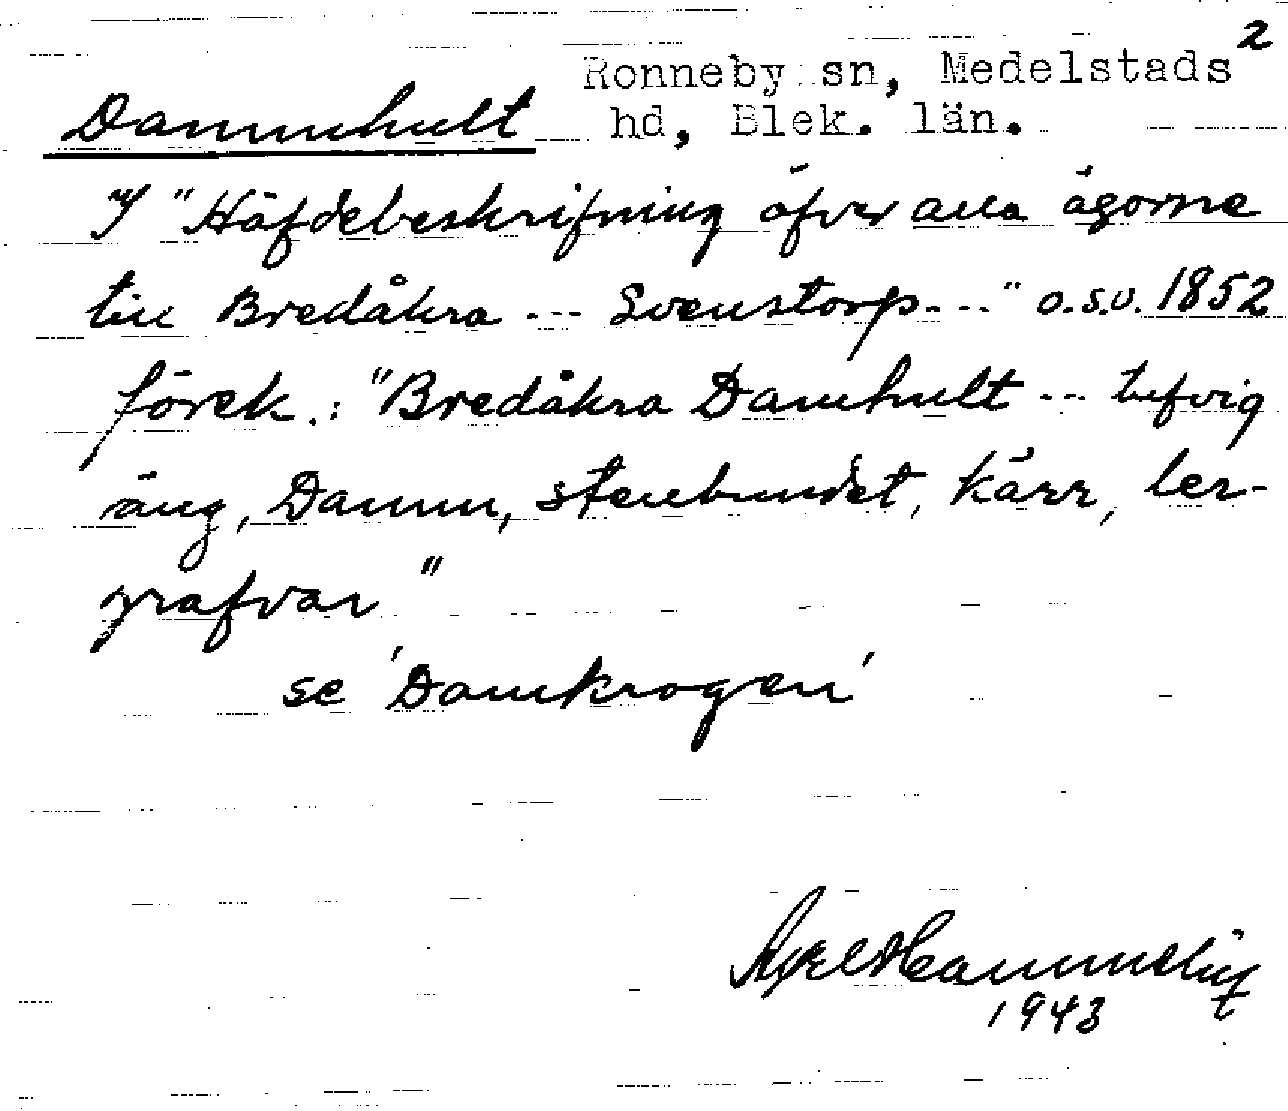 2
Ronneby sn, Medelstads
Dammhult hd, Blek. län.
I "Häfdebeskrifning öfver alla ägorne
till Bredåkra --- Svenstorp---" o.s.v. 1852
förek.: "Bredåkra Damhult --- tufvig
äng, Damm, stenbundet, kärr, ler-
grafvar"
se 'Damkrogen'
Axel Hammelin
1943